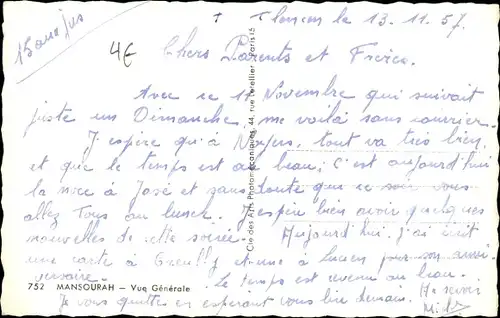 le 13.11.57
4€
Chers Parents et Frères.
Avec ce 11 Novembre qui suivait
juste un Dimanche, me voilà sans courrier.
J'espère qu'à Noyers, tout va très bien,
et que le temps est au beau; C'est aujourd'hui
la noce à José et sans doute que ce soir vous
allez Tous au lunch. J'espère bien avoir quelques
nouvelles de cette soirée. Aujourd'hui j'ai écrit
une carte à et une à Lucien pour son anni-
versaire. Le temps est revenu au beau.
752 MANSOURAH — Vue Générale
Je vous quitte en espérant vous lire demain. Au revoir
Cie des Arts Photomécaniques, 44, rue Letellier - Paris 15